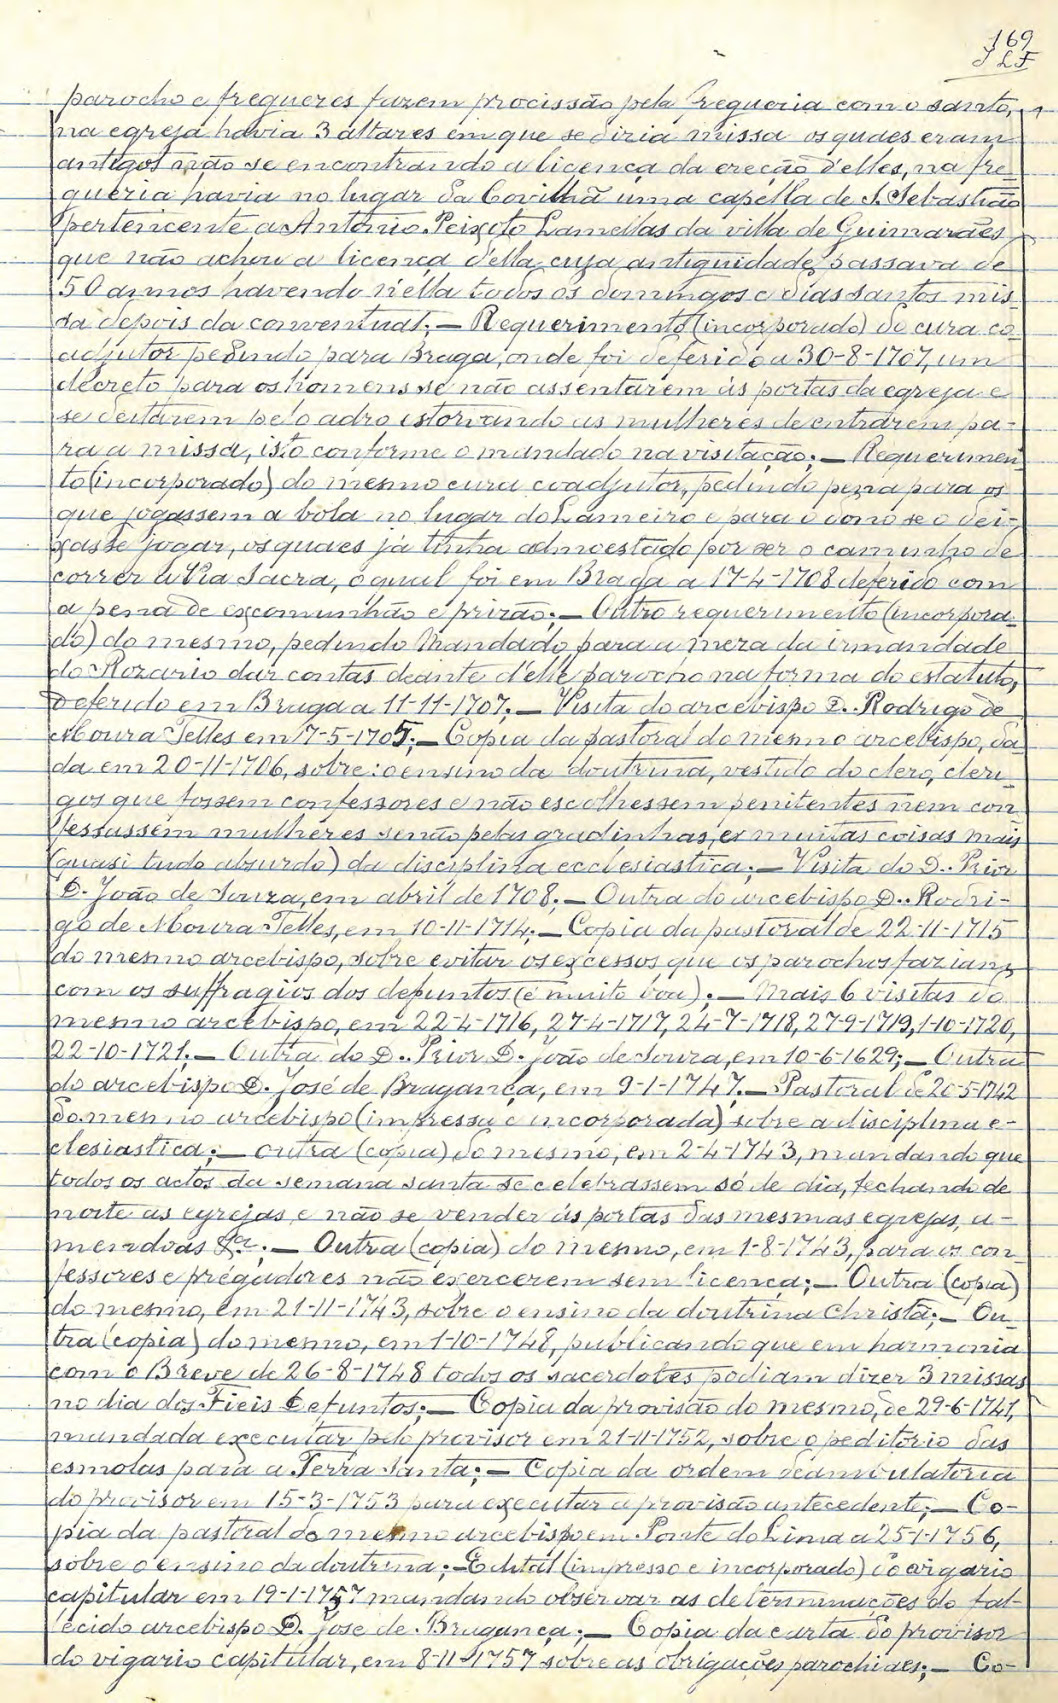 169
J L F
parocho e freguezes fazem procissão pela freguezia com o santo,
na egreja havia 3 altares em que se dizia missa os quaes eram
antigos não se encontrando a licença da ereção d'elles, na fre-
guezia havia no lugar da Covilhã uma capella de S. Sebastião
pertencente a Antonio Peixoto Lamellas da villa de Guimarães
que não achou a licença d'ella cuja antiguidade passava de
50 annos havendo n'ella todos os domingos e dias santos mis-
sa depois da conventual; — Requerimento (incorporado) do cura co-
adjutor pedindo para Braga, onde foi deferido a 30-8-1707, um
decreto para os homens se não assentarem ás portas da egreja e
se deitarem pelo adro estorvando as mulheres de entrarem pa-
ra a missa, isto conforme o mandado na visitação; — Requerimen
to (incorporado) do mesmo cura coadjutor, pedindo pena para os
que jogassem a bola no lugar do Lameiro e para o dono se o dei-
xasse jogar, os quaes já tinha admoestado por ser o caminho de
correr a Via Sacra, o qual foi em Braga a 17-4-1708 deferido com
a pena de excomunhão e prizão; — Outro requerimento (incorpora-
do) do mesmo, pedindo Mandado para a meza da irmandade
do Rozario dar contas deante d'elle parocho na forma do estatuto,
deferido em Braga a 11-11-1707; — Visita do arcebispo D. Rodrigo de
Moura Telles em 7-5-1705; — Copia da pastoral do mesmo arcebispo, da-
da em 20-11-1706, sobre: o ensino da doutrina, vestido do clero, cleri-
gos que fossem confessores e não escolhessem penitentes nem con
fessassem mulheres senão pelas gradinhas, e muitas coisas mais
(quasi tudo absurdo) da disciplina ecclesiastica; — Visita do D. Prior
D. João de Souza, em abril de 1708; — Outra do arcebispo D. Rodri-
go de Moura Telles, em 10-11-1714; — Copia da pastoral de 22-11-1715
do mesmo arcebispo, sobre evitar os excessos que os parochos faziam
com os suffragios dos defuntos (é muito boa); — Mais 6 visitas do
mesmo arcebispo, em 22-4-1716, 27-4-1717, 24-7-1718, 27-9-1719, 1-10-1720,
22-10-1721. — Outra do D. Prior D. João de Souza, em 10-6-1629; — Outra
do arcebispo D. José de Bragança, em 9-1-1747. — Pastoral de 20-5-1742
do mesmo arcebispo (impressa e incorporada) sobre a disciplina e-
clesiastica; — outra (copia) do mesmo, em 2-4-1743, mandando que
todos os actos da semana santa se celebrassem só de dia, fechando de
noite as egrejas e não se vender ás portas das mesmas egrejas, a-
mendoas &.ª; — Outra (copia) do mesmo, em 1-8-1743, para os con
fessores e prégadores não exercerem sem licença; — Outra (copia)
do mesmo, em 21-11-1743, sobre o ensino da doutrina christã; — Ou-
tra (copia) do mesmo, em 1-10-1748, publicando que em harmonia
com o Breve de 26-8-1748 todos os sacerdotes podiam dizer 3 missas
no dia dos Fieis Defuntos; — Copia da provisão do mesmo, de 29-6-1741,
mandada executar pelo provisor em 21-11-1752, sobre o peditorio das
esmolas para a Terra Santa; — Copia da ordem deambulatoria
do provisor em 15-3-1753 para executar a provisão antecedente; — Co-
pia da pastoral do mesmo arcebispo em Ponte do Lima a 25-1-1756,
sobre o ensino da doutrina; — Edital (impresso e incorporado) do vigario
capitular em 19-1-1757 mandando observar as determinações do fal-
lecido arcebispo D. José de Bragança; — Copia da carta do provisor
do vigario capitular, em 8-11-1757 sobre as obrigações parochiaes; — Co-